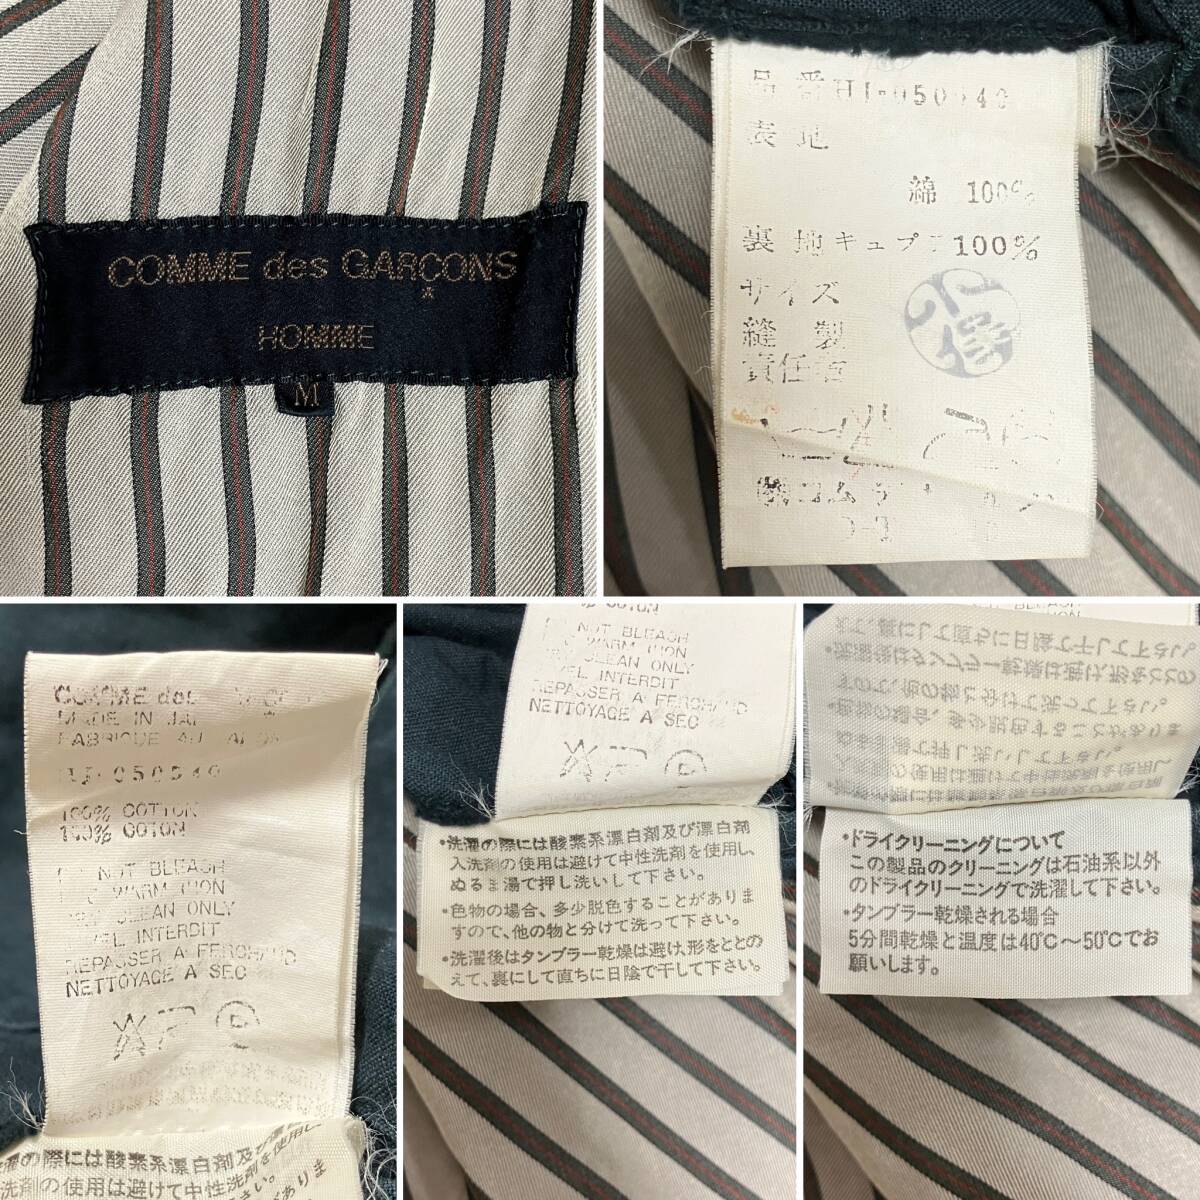 COMME des GARÇONS
HOMME
M
品番HJ-050540
表地
綿 100%
裏地キュプラ100%
サイズ
縫製
責任者
小澤
COMME des
MADE IN JAPAN
FABRIQUE AU JAPON
HJ-050540
100% COTTON
100% COTON
DO NOT BLEACH
WARM IRON
DRY CLEAN ONLY
JAVEL INTERDIT
REPASSER A FERCHAUD
NETTOYAGE A SEC
P
濯の際には酸素系漂白剤及び漂
洗剤の使用は避けて中性洗剤を使用し、
100% COTON
NOT BLEACH
WARM IRON
CLEAN ONLY
JAVEL INTERDIT
REPASSER A FERCHAUD
NETTOYAGE A SEC
P
・洗濯の際には酸素系漂白剤及び漂白剤
入洗剤の使用は避けて中性洗剤を使用し、
ぬるま湯で押し洗いして下さい。
・色物の場合、多少脱色することがありま
すので、他の物と分けて洗って下さい。
・洗濯後はタンブラー乾燥は避け、形をととの
えて、裏にして直ちに日陰で干して下さい。
・ドライクリーニングについて
この製品のクリーニングは石油系以外
のドライクリーニングで洗濯して下さい。
・タンブラー乾燥される場合
5分間乾燥と温度は40℃〜50℃でお
願いします。